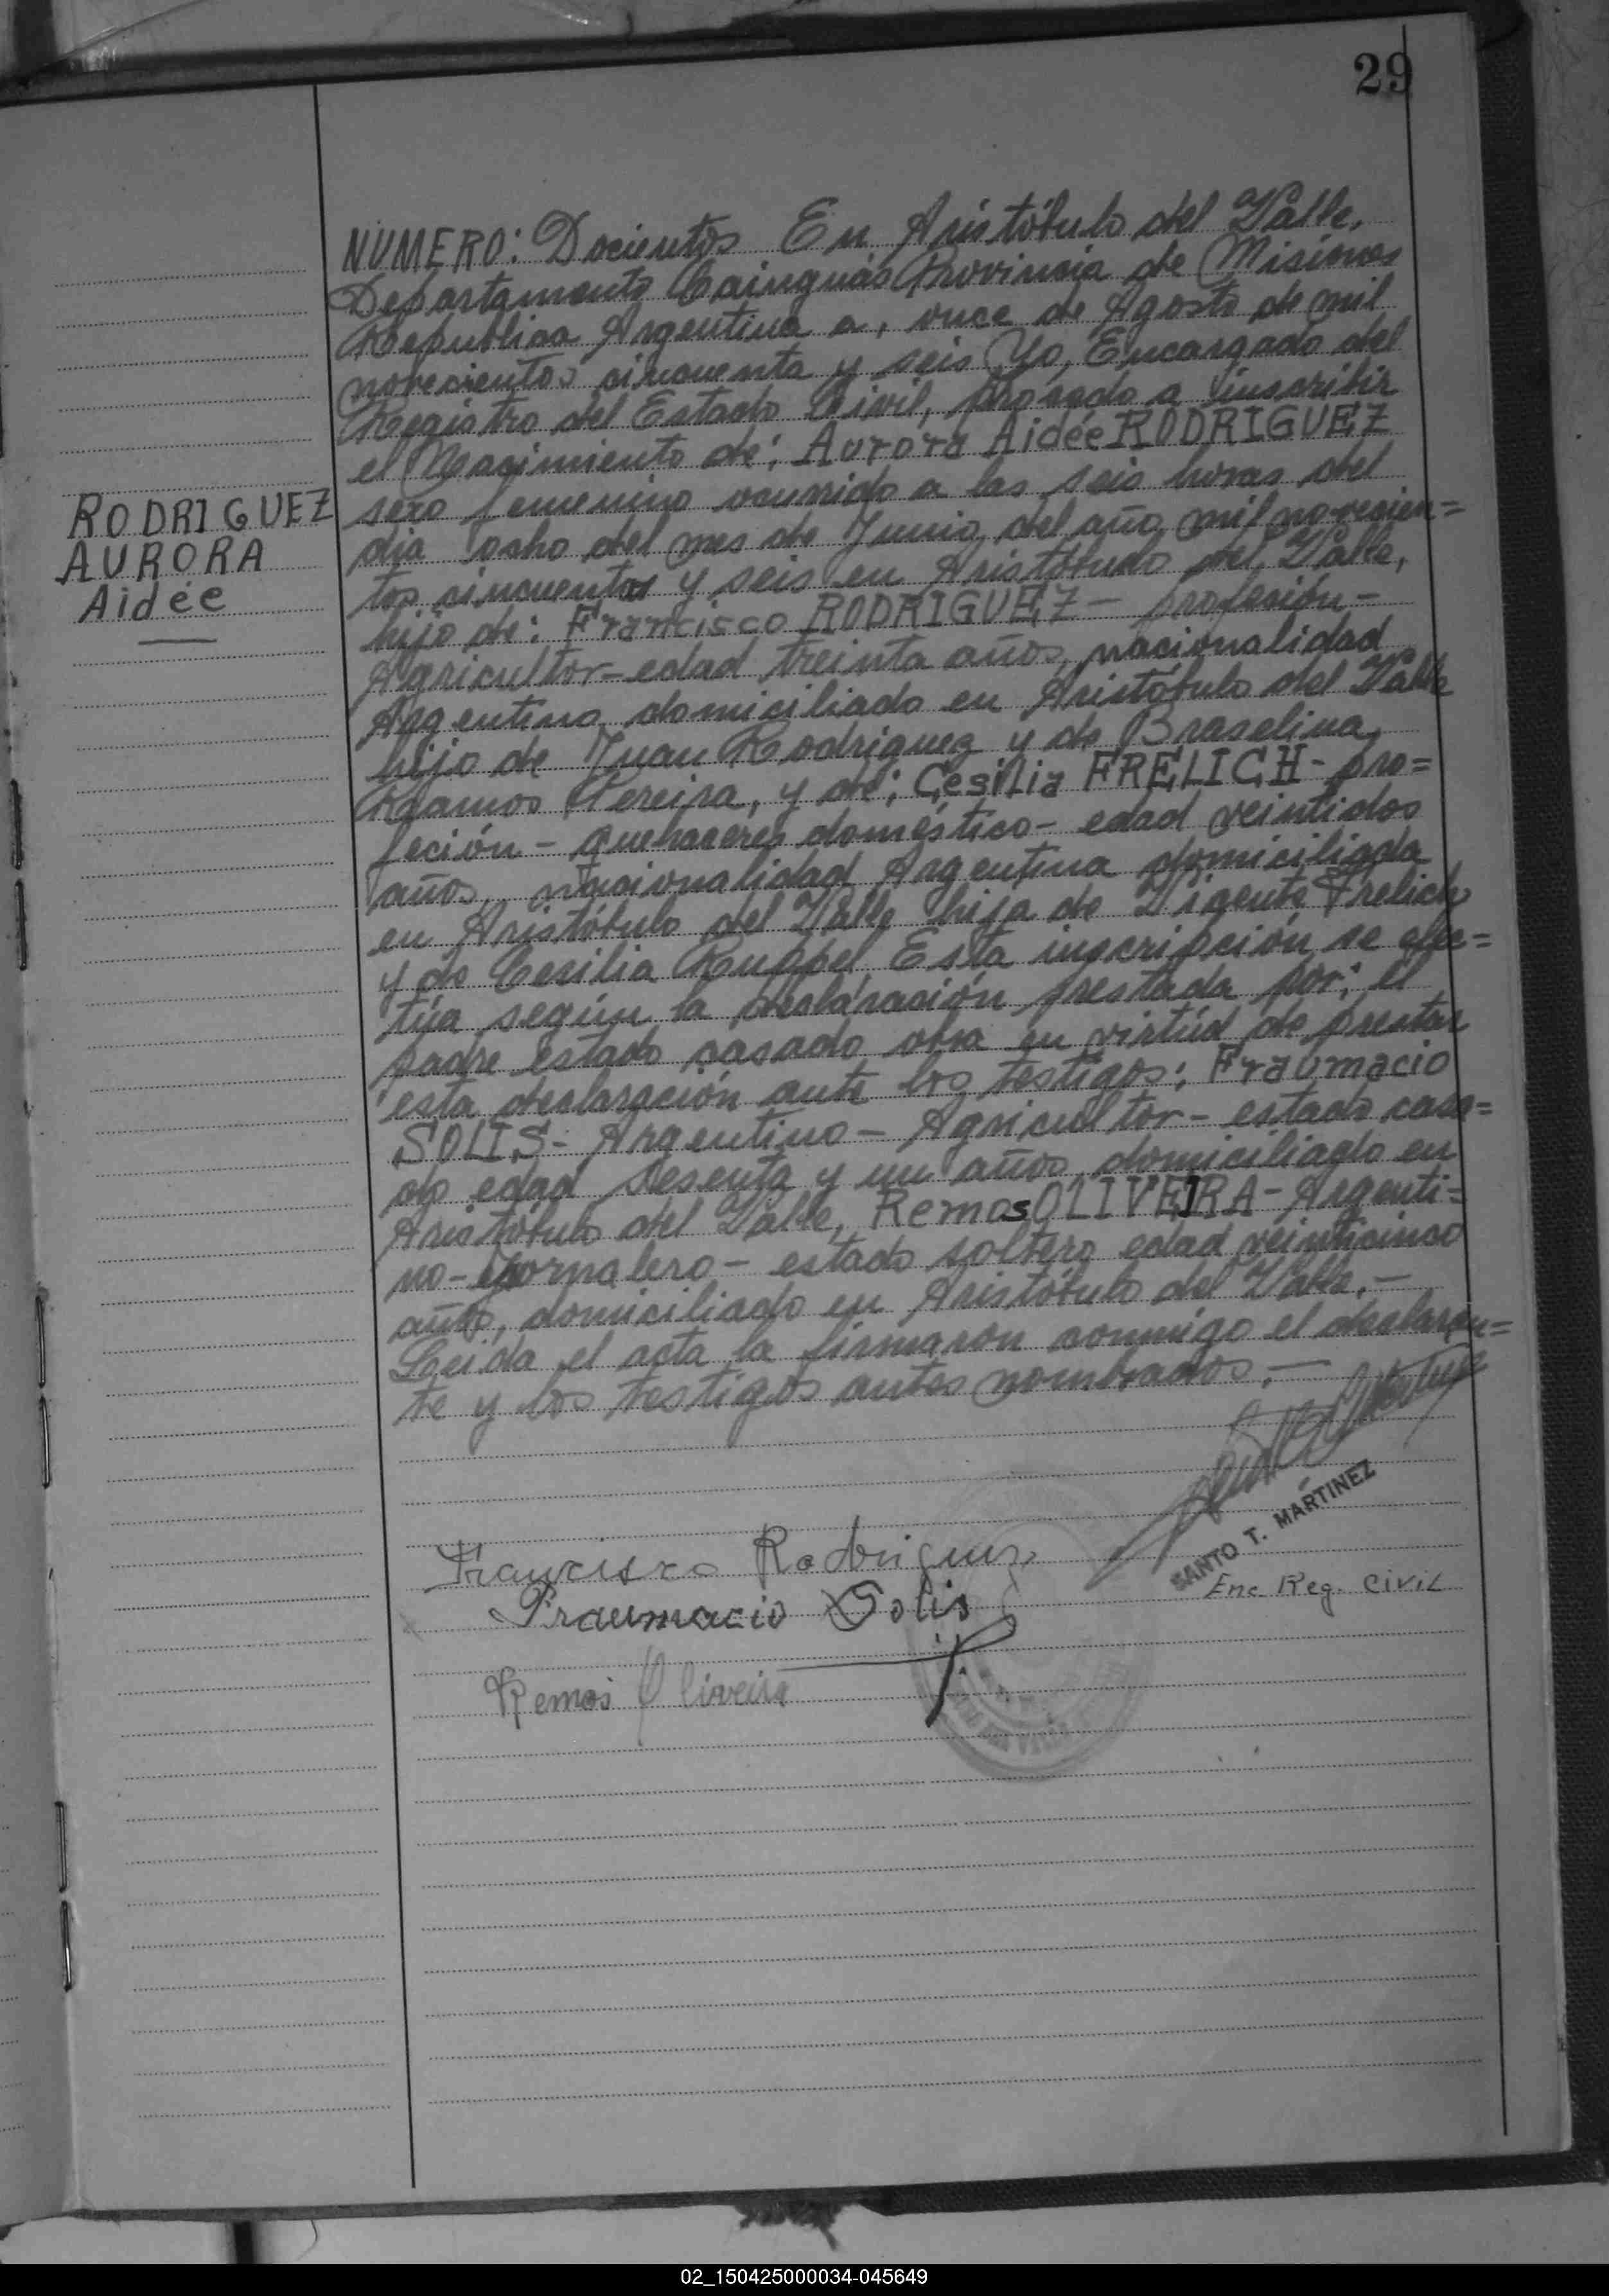 29
NUMERO: Docientos En Aristóbulo del Valle,
Departamento Cainguás Provincia de Misiones
Republica Argentina a, once de Agosto de mil
novecientos cincuenta y seis Yo, Encargado del
Registro del Estado Civil, procedo a inscribir
el Nacimiento de: Aurora Aidée RODRIGUEZ
sexo femenino ocurrido a las seis horas del
dia ocho del mes de Junio del año mil novecien=
tos cincuenta y seis en Aristóbulo del Valle,
hijo de: Francisco RODRIGUEZ - profesión -
Agricultor - edad treinta años, nacionalidad
Argentino domiciliado en Aristóbulo del Valle
hijo de Juan Rodriguez y de Braselina
Ramos Pereira, y de: Cesilia FRELICH - pro=
feción - quehaceres doméstico - edad veintidos
años, nacionalidad Argentina domiciliada
en Aristóbulo del Valle hija de Vigente Frelich
y de Cesilia Ruppel Esta inscripción se efec=
túa según la declaración prestada por: el
padre estado casado obra en virtúd de prestar
esta declaración ante los testigos: Fraumacio
SOLIS - Argentino - Agricultor - estado casa=
do edad sesenta y un años, domiciliado en
Aristóbulo del Valle, Remos OLIVEIRA - Argenti=
no - jornalero - estado soltero edad veinticinco
años, domiciliado en Aristóbulo del Valle. -
Leida el acta la firmaron conmigo el declaran=
te y los testigos antes nombrados. -
RODRIGUEZ
AURORA
Aidée
SANTO T. MARTINEZ
Enc Reg. Civil
Francisco Rodriguez
Fraumacio Solis
Remos Oliveira
02_150425000034-045649